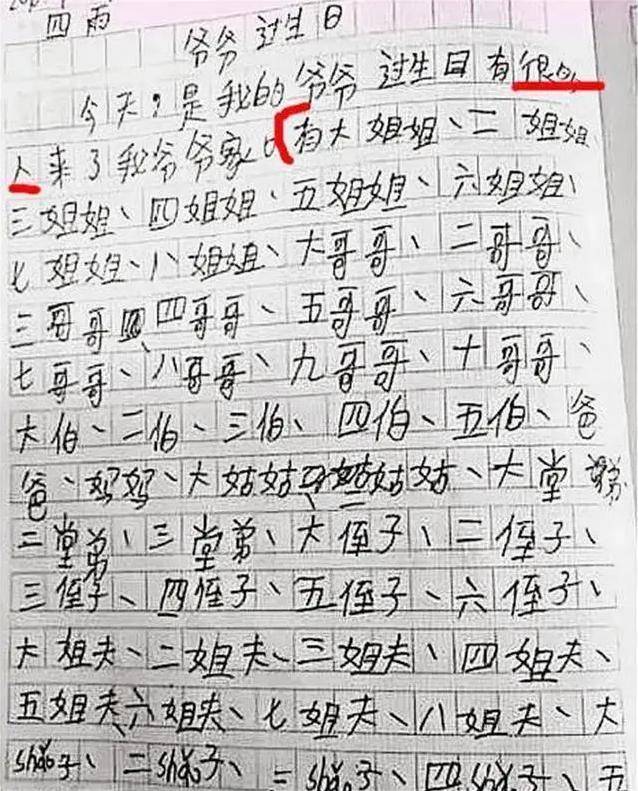 四雨
爷爷过生日
今天,是我的爷爷过生日有很多
人来了我爷爷家。有大姐姐、二姐姐
三姐姐、四姐姐、五姐姐、六姐姐、
七姐姐、八姐姐、大哥哥、二哥哥、
三哥哥、四哥哥、五哥哥、六哥哥、
七哥哥、八哥哥、九哥哥、十哥哥、
大伯、二伯、三伯、四伯、五伯、爸
爸、妈妈、大姑姑、二姑姑、大堂弟
二堂弟、三堂弟、大侄子、二侄子、
三侄子、四侄子、五侄子、六侄子、
大姐夫、二姐夫、三姐夫、四姐夫、
五姐夫、六姐夫、七姐夫、八姐夫、大
shǎo子、二shǎo子、三shǎo子、四shǎo子、五